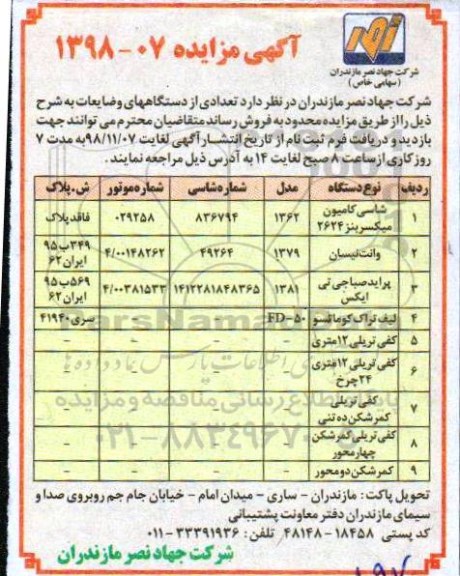 آگهی مزایده ۰۷-۱۳۹۸
شرکت جهاد نصر مازندران
(سهامی خاص)
شرکت جهاد نصر مازندران در نظر دارد تعدادی از دستگاههای وضایعات به شرح
ذیل را از طریق مزایده محدود به فروش رساند متقاضیان محترم می توانند جهت
بازدید و دریافت فرم ثبت نام از تاریخ انتشار آگهی لغایت ۹۸/۱۱/۰۷ به مدت ۷
روز کاری از ساعت ۸ صبح لغایت ۱۴ به آدرس ذیل مراجعه نمایند.
ردیف نوع دستگاه مدل شماره شاسی شماره موتور ش.پلاک
۱ شاسی کامیون میکسر بنز ۲۶۲۴ ۱۳۶۲ ۸۳۶۷۹۴ ۰۲۹۲۵۸ فاقد پلاک
۲ وانت نیسان ۱۳۷۹ ۴۹۲۶۴ ۴/۰۰۱۴۸۲۶۲ ۳۴۹ب۹۵ ایران۶۲
۳ پراید صبا جی تی ایکس ۱۳۸۱ ۱۴۱۲۲۸۱۸۴۸۳۶۵ ۴/۰۰۳۸۱۵۳۳ ۵۶۹ب۹۵ ایران۶۲
۴ لیف تراک کوماتسو FD-۵۰ - - سری ۴۱۹۴۰
۵ کفی تریلی ۱۲متری - - - -
۶ کفی تریلی ۱۲متری ۲۴چرخ - - - -
۷ کفی تریلی کمرشکن ده تنی - - - -
۸ کفی تریلی کمرشکن چهارمحور - - - -
۹ کمرشکن دومحور - - - -
تحویل پاکت: مازندران - ساری - میدان امام - خیابان جام جم روبروی صدا و
سیمای مازندران دفتر معاونت پشتیبانی
کد پستی ۱۸۴۵۸-۴۸۱۴۸ تلفن: ۳۳۳۹۱۹۳۶-۰۱۱
شرکت جهاد نصر مازندران